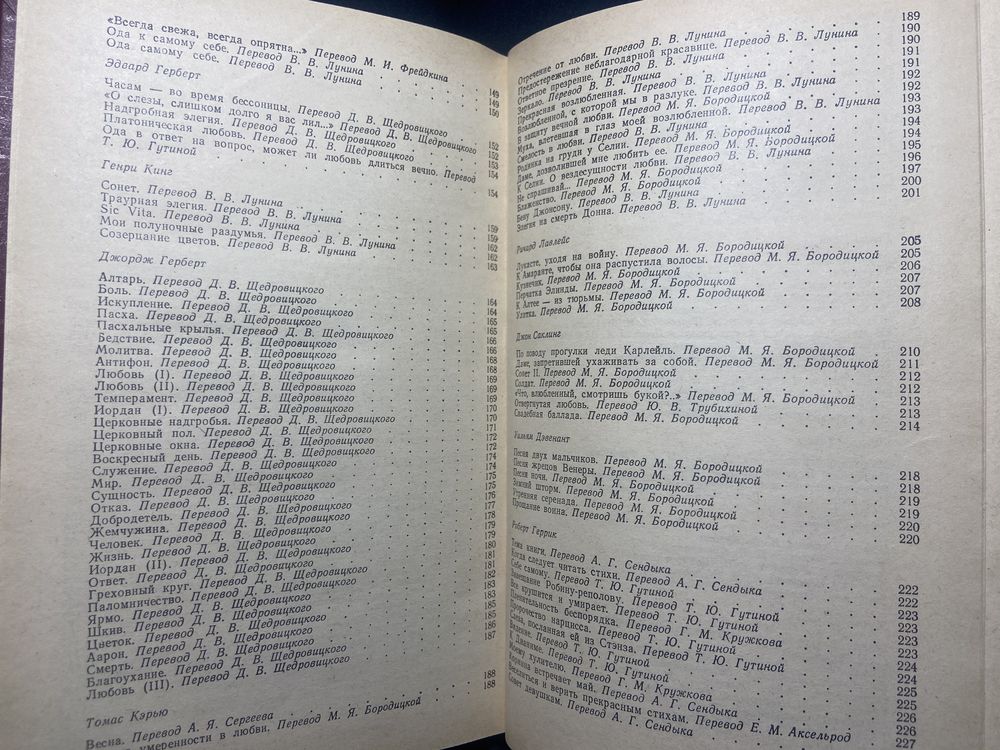 «Всегда свежа, всегда опрятна...» Перевод М. И. Фрейдкина
Ода к самому себе. Перевод В. В. Лунина 149
Ода самому себе. Перевод В. В. Лунина 149
150
Эдвард Герберт
Часам — во время бессонницы. Перевод Д. В. Щедровицкого
«О слезы, слишком долго я вас лил...» Перевод Д. В. Щедровицкого 152
Надгробная элегия. Перевод Д. В. Щедровицкого 152
Платоническая любовь. Перевод Д. В. Щедровицкого 153
Ода в ответ на вопрос, может ли любовь длиться вечно. Перевод 154
Т. Ю. Гутиной 154
Генри Кинг
Сонет. Перевод В. В. Лунина
Траурная элегия. Перевод В. В. Лунина 159
Sic Vita. Перевод В. В. Лунина 159
Мои полуночные раздумья. Перевод В. В. Лунина 162
Созерцание цветов. Перевод В. В. Лунина 162
163
Джордж Герберт
Алтарь. Перевод Д. В. Щедровицкого
Боль. Перевод Д. В. Щедровицкого 164
Искупление. Перевод Д. В. Щедровицкого 164
Пасха. Перевод Д. В. Щедровицкого 165
Пасхальные крылья. Перевод Д. В. Щедровицкого 165
Бедствие. Перевод Д. В. Щедровицкого 166
Молитва. Перевод Д. В. Щедровицкого 166
Антифон. Перевод Д. В. Щедровицкого 168
Любовь (I). Перевод Д. В. Щедровицкого 168
Любовь (II). Перевод Д. В. Щедровицкого 169
Темперамент. Перевод Д. В. Щедровицкого 169
Иордан (I). Перевод Д. В. Щедровицкого 170
Церковные надгробья. Перевод Д. В. Щедровицкого 170
Церковный пол. Перевод Д. В. Щедровицкого 171
Церковные окна. Перевод Д. В. Щедровицкого 172
Воскресный день. Перевод Д. В. Щедровицкого 172
Служение. Перевод Д. В. Щедровицкого 174
Мир. Перевод Д. В. Щедровицкого 174
Сущность. Перевод Д. В. Щедровицкого 175
Отказ. Перевод Д. В. Щедровицкого 176
Добродетель. Перевод Д. В. Щедровицкого 177
Жемчужина. Перевод Д. В. Щедровицкого 178
Человек. Перевод Д. В. Щедровицкого 179
Жизнь. Перевод Д. В. Щедровицкого 180
Иордан (II). Перевод Д. В. Щедровицкого 181
Ответ. Перевод Д. В. Щедровицкого 181
Греховный круг. Перевод Д. В. Щедровицкого 182
Паломничество. Перевод Д. В. Щедровицкого 183
Ярмо. Перевод Д. В. Щедровицкого 183
Шкив. Перевод Д. В. Щедровицкого 185
Цветок. Перевод Д. В. Щедровицкого 185
Аарон. Перевод Д. В. Щедровицкого 186
Смерть. Перевод Д. В. Щедровицкого 187
Благоухание. Перевод Д. В. Щедровицкого
Любовь (III). Перевод Д. В. Щедровицкого
Томас Кэрью
Весна. Перевод А. Я. Сергеева 188
умеренности в любви. Перевод М. Я. Бородицкой 188
Отречение от любви. Перевод В. В. Лунина 189
Предостережение неблагодарной красавице. Перевод В. В. Лунина 190
Ответное презрение. Перевод В. В. Лунина 190
Зеркало. Перевод В. В. Лунина 191
Прекрасная возлюбленная. Перевод В. В. Лунина 191
Возлюбленной, с которой мы в разлуке. Перевод В. В. Лунина 192
В защиту вечной любви. Перевод М. Я. Бородицкой 192
Муха, влетевшая в глаз моей возлюбленной. Перевод В. В. Лунина 193
Смелость в любви. Перевод В. В. Лунина 194
Родинка на груди у Селии. Перевод М. Я. Бородицкой 194
Даме, дозволившей мне любить ее. Перевод В. В. Лунина 195
К Селии. О вездесущности любви. Перевод В. В. Лунина 196
Не спрашивай... Перевод М. Я. Бородицкой 197
Блаженство. Перевод М. Я. Бородицкой 200
Бену Джонсону. Перевод В. В. Лунина 201
Элегия на смерть Донна. Перевод В. В. Лунина
Ричард Лавлейс
Лукасте, уходя на войну. Перевод М. Я. Бородицкой 205
К Амаранте, чтобы она распустила волосы. Перевод М. Я. Бородицкой 205
Кузнечик. Перевод М. Я. Бородицкой 206
Перчатка Элинды. Перевод М. Я. Бородицкой 207
К Алтее — из тюрьмы. Перевод М. Я. Бородицкой 207
Улитка. Перевод М. Я. Бородицкой 208
Джон Саклинг
По поводу прогулки леди Карлейль. Перевод М. Я. Бородицкой 210
Даме, запретившей ухаживать за собой. Перевод М. Я. Бородицкой 211
Сонет II. Перевод М. Я. Бородицкой 212
Солдат. Перевод М. Я. Бородицкой 212
«Что, влюбленный, смотришь букой?..» Перевод М. Я. Бородицкой 213
Отвергнутая любовь. Перевод Ю. В. Трубихиной 213
Свадебная баллада. Перевод М. Я. Бородицкой 214
Уильям Дэвенант
Песня двух мальчиков. Перевод М. Я. Бородицкой 218
Песня жрецов Венеры. Перевод М. Я. Бородицкой 218
Песня ночи. Перевод М. Я. Бородицкой 219
Зимний шторм. Перевод М. Я. Бородицкой 219
Утренняя серенада. Перевод М. Я. Бородицкой 220
Прощание воина. Перевод М. Я. Бородицкой 220
Роберт Геррик
Тема книги. Перевод А. Г. Сендыка
Когда следует читать стихи. Перевод А. Г. Сендыка 222
Себе самому. Перевод Т. Ю. Гутиной 222
Завещание Робину-реполову. Перевод Т. Ю. Гутиной 223
Все крушится и умирает. Перевод Т. Ю. Гутиной 223
Пленительность беспорядка. Перевод Г. М. Кружкова 223
Пророчество нарцисса. Перевод Т. Ю. Гутиной 224
Слеза, посланная ей из Стэнза. Перевод Т. Ю. Гутиной 224
Видение. Перевод Т. Ю. Гутиной 225
К Дианиме. Перевод Т. Ю. Гутиной 225
Моему хулителю. Перевод Г. М. Кружкова 226
Коринна встречает май. Перевод А. Г. Сендыка 226
и верить прекрасным стихам. Перевод Е. М. Аксельрод 227
Совет девушкам. Перевод А. Г. Сендыка